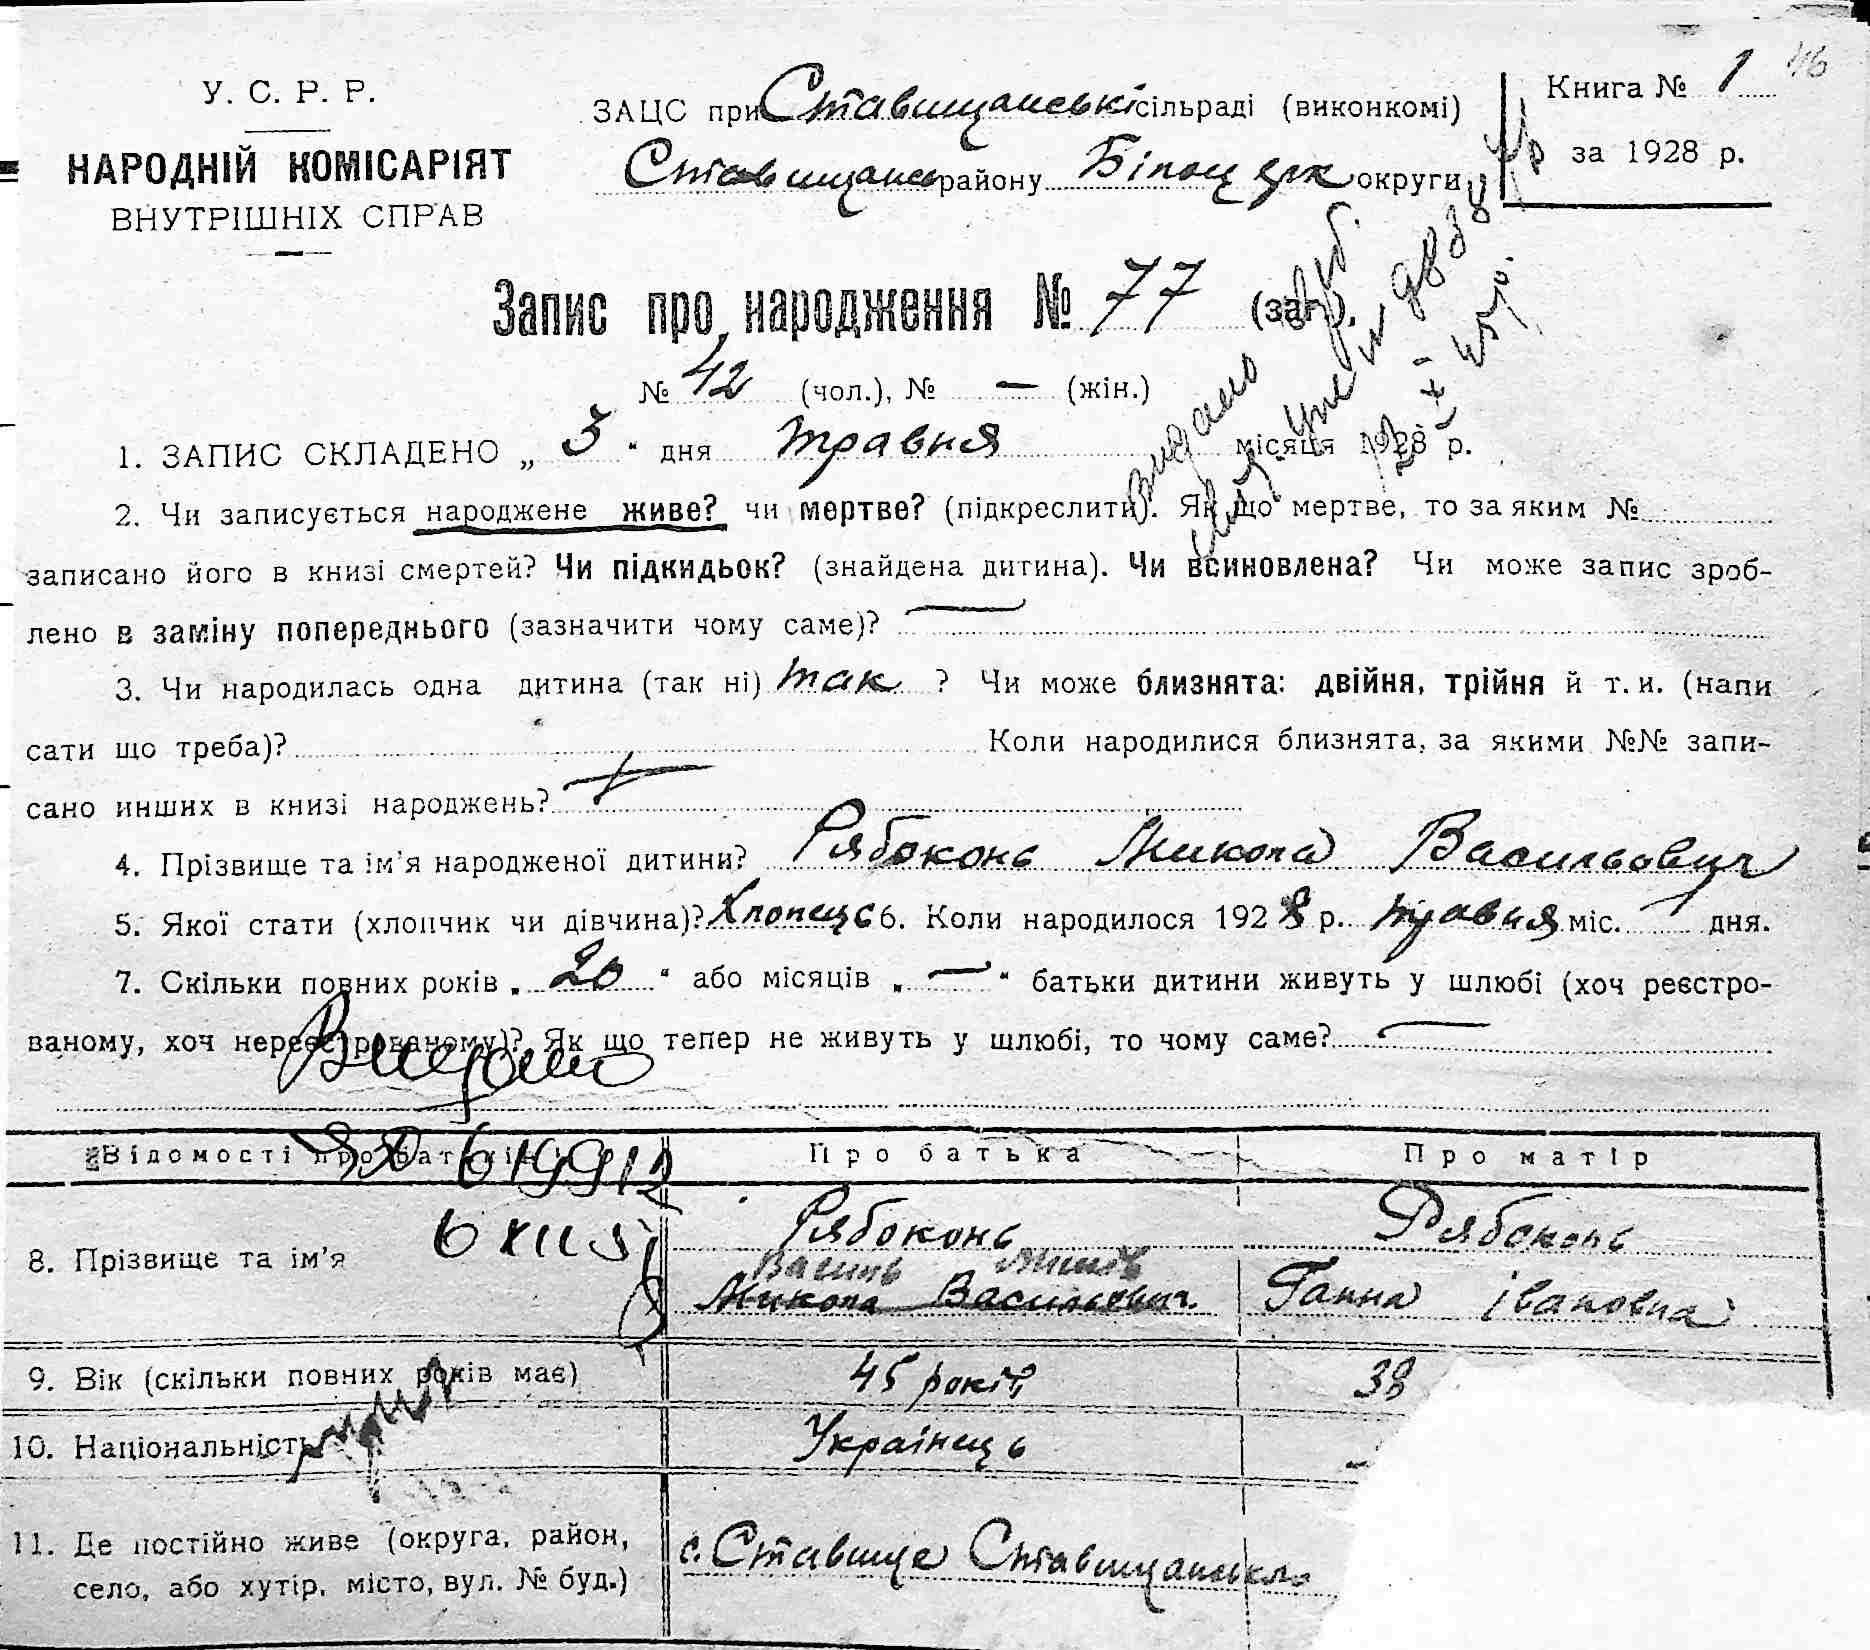 46
У. С. Р. Р.
НАРОДНІЙ КОМІСАРІЯТ
ВНУТРІШНІХ СПРАВ
ЗАЦС при Ставищанські сільраді (виконкомі)
Ставищансь району Білоцерк округи
Книга № 1
за 1928 р.
Запис про народження № 77 (заг).
№ 42 (чол.), № — (жін.)
Видано
1. ЗАПИС СКЛАДЕНО „ 3 “ дня травня місяця 1928 р.
2. Чи записується народжене живе? чи мертве? (підкреслити). Як що мертве, то за яким №
записано його в книзі смертей? Чи підкидьок? (знайдена дитина). Чи всиновлена? Чи може запис зроб-
лено в заміну попереднього (зазначити чому саме)? —
3. Чи народилась одна дитина (так ні) так ? Чи може близнята: двійня, трійня й т. и. (напи
сати що треба)? Коли народилися близнята, за якими №№ запи-
сано инших в книзі народжень?
4. Прізвище та ім'я народженої дитини? Рябоконь Микола Васильович
5. Якої стати (хлопчик чи дівчина)? Хлопець 6. Коли народилося 1928 р. травня міс. 1 дня.
7. Скільки повних років „ 20 “ або місяців „ — “ батьки дитини живуть у шлюбі (хоч реєстро-
ваному, хоч нереєстрованому)? Як що тепер не живуть у шлюбі, то чому саме? —
Видано
Відомості про батьків Про батька Про матір
8. Прізвище та ім'я Рябоконь Рябоконь
Василь
Микола Васильович Ганна Івановна
9. Вік (скільки повних років має) 45 років 38
10. Національність Українець
11. Де постійно живе (округа, район,
село, або хутір, місто, вул. № буд.) с. Ставище Ставищанського